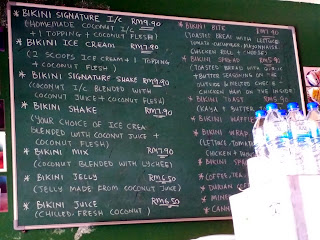 * BIKINI SIGNATURE I/C RM9.90
(HOMEMADE COCONUT I/C
+ 1 TOPPING + COCONUT FLESH)
* BIKINI ICE CREAM RM7.90
(2 SCOOPS ICE CREAM + 1 TOPPING
+ COCONUT FLESH)
* BIKINI SIGNATURE SHAKE RM9.90
(COCONUT I/C BLENDED WITH
COCONUT JUICE + COCONUT FLESH)
* BIKINI SHAKE RM7.90
(YOUR CHOICE OF ICE CREA
BLENDED WITH COCONUT JUICE +
COCONUT FLESH)
* BIKINI MIX RM7.90
(COCONUT BLENDED WITH LYCHEE)
* BIKINI JELLY RM6.50
(JELLY MADE FROM COCONUT JUICE)
* BIKINI JUICE RM6.50
(CHILLED FRESH COCONUT)
* BIKINI BITE
(TOASTED BREAD WITH LETTUCE
TOMATO CUCUMBER, MAYONNAISE
CHICKEN ROLL + CHEESE)
* BIKINI SPREAD RM5.90
(TOASTED BREAD WITH
+ BUTTER SEASONING ON THE
OUTSIDE & MELTED CHEESE +
CHICKEN HAM ON THE INSIDE)
* BIKINI TOAST
(KAYA + BUTTER
* BIKINI WAFFLE
* BIKINI WRAP
(LETTUCE, TOMATO
CHICKEN +
* BIKINI
* COFFEE, TEA
* DURIAN
* MINE
* CANN